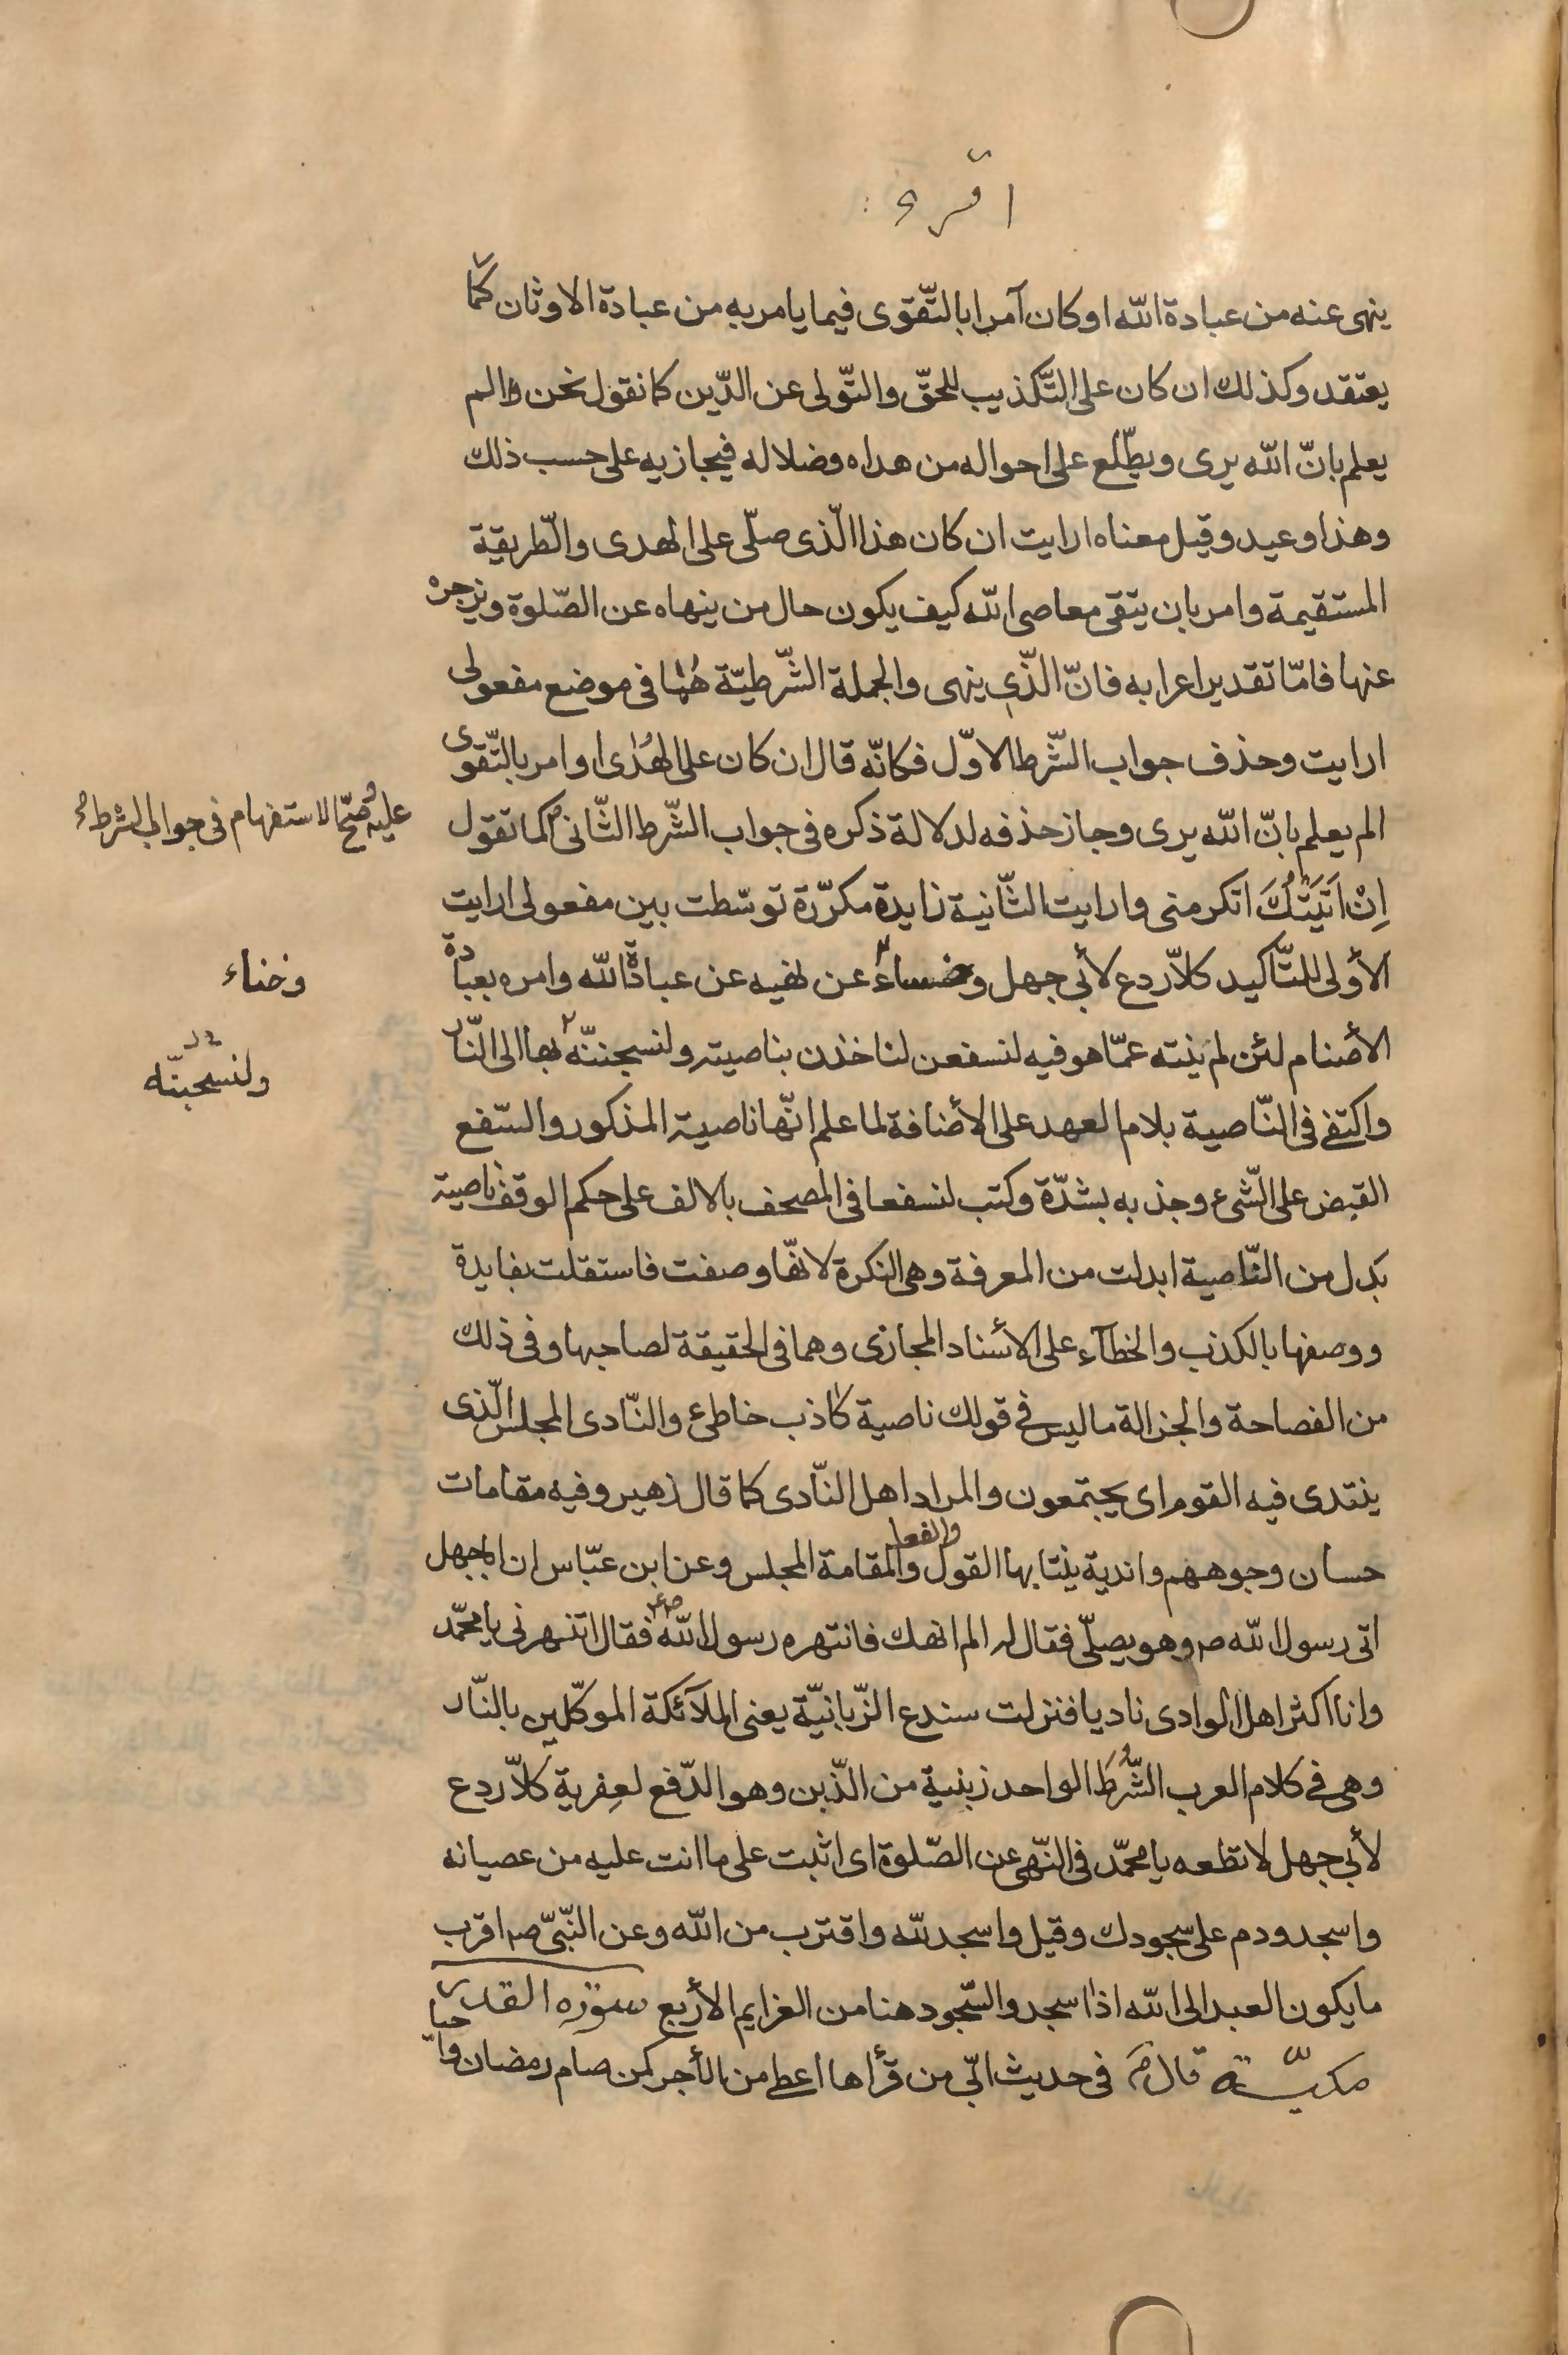 اقرء
ينهى عنه من عبادة الله او كان آمرا بالتّقوى فيما يامر به من عبادة الاوثان كما
يعتقد وكذلك ان كان على التّكذيب للحقّ والتّولى عن الدّين كما نقول نحن والم
يعلم بانّ الله يرى ويطّلع على احواله من هداه وضلاله فيجازيه على حسب ذلك
وهذا وعيد وقيل معناه ارايت ان كان هذا الّذى صلّى على الهدى والطّريقة
المستقيمة وامر بان يتقى معاصى الله كيف يكون حال من ينهاه عن الصّلوة ويزجره
عنها فامّا تقدير اعرابه فانّ الذّى ينهى والجملة الشّرطيّة هُما فى موضع مفعولى
ارايت وحذف جواب الشّرط الاوّل فكانّه قال ان كان على الهُدى او امر بالتّقوى
الم يعلم بانّ الله يرى وجاز حذفه لدلالة ذكره فى جواب الشّرط الثّانى كما تقول
عليه وصحّ الاستفهام فى جواب الشرط
اِنْ اَتَيْتُكَ اتكرمنى وارايت الثّانية زايدة مكرّرة توسّطت بين مفعولى ارايت
الأولى للتّاكيد كلّا ردع لأبى جهل وخساء عن نهيه عن عبادة الله وامره بعبادة
وخناء
الأصنام لئن لم ينته عمّا هو فيه لنسفعن لناخذن بناصيته ولنسجننّه بها الى النّار
ولنسحبنّه
واكتفى فى النّاصية بلام العهد على الأضافة لما علم انّها ناصية المذكور والسّفع
القبض على الشّىء وجذبه بشدّة وكتب لنسفعا فى المصحف بالالف على حكم الوقف ناصية
بدل من النّاصية ابدلت من المعرفة وهى النكرة لانّها وصفت فاستقلت بفايدة
ووصفها بالكذب والخطآء على الأسناد المجازى وهما فى الحقيقة لصاحبها وفى ذلك
من الفصاحة والجزالة ما ليس فى قولك ناصية كاذب خاطئ والنّادى المجلس الّذى
ينتدى فيه القوم اى يجتمعون والمراد اهل النّادى كما قال زهير وفيه مقامات
حسان وجوههم واندية ينتابها القول والفعل والمقامة المجلس وعن ابن عبّاس ان ابجهل
اتى رسول الله ص وهو يصلّى فقال له الم انهك فانتهره رسول الله ص فقال اتنهرنى يا محمّد
وانا اكثر اهل الوادى ناديا فنزلت سندع الزّبانيّة يعنى الملآئكة الموكّلين بالنّار
وهى فى كلام العرب الشُّرَط الواحد زبنية من الزّبن وهو الدّفع لعِفرية كلّا ردع
لأبى جهل لا تطعه يا محمّد فى النّهى عن الصّلوة اى اثبت على ما انت عليه من عصيانه
واسجد ودم على سجودك وقيل واسجد لله واقترب من الله وعن النّبىّ ص اقرب
ما يكون العبد الى الله اذا سجد والسّجود هنا من العزايم الأربع سورة القدر
مكيّة قال ص فى حديث ابىّ من قرأها اعطى من الأجر كمن صام رمضان واحيا